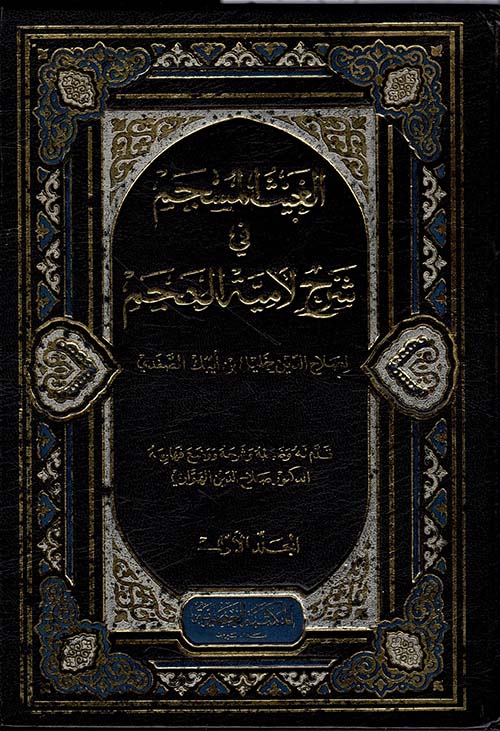 الغيث المسجم
في
شرح لامية العجم
لصلاح الدين خليل بن أيبك الصفدي
قدّم له وضبطه وشرحه ووضع فهارسه
الدكتور صلاح الدين الهواري
المجلد الأول
المكتبة العصرية